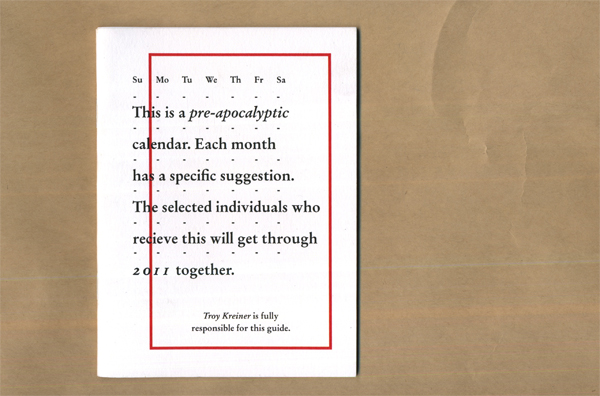 Su Mo Tu We Th Fr Sa
This is a pre-apocalyptic
calendar. Each month
has a specific suggestion.
The selected individuals who
recieve this will get through
2011 together.
Troy Kreiner is fully
responsible for this guide.